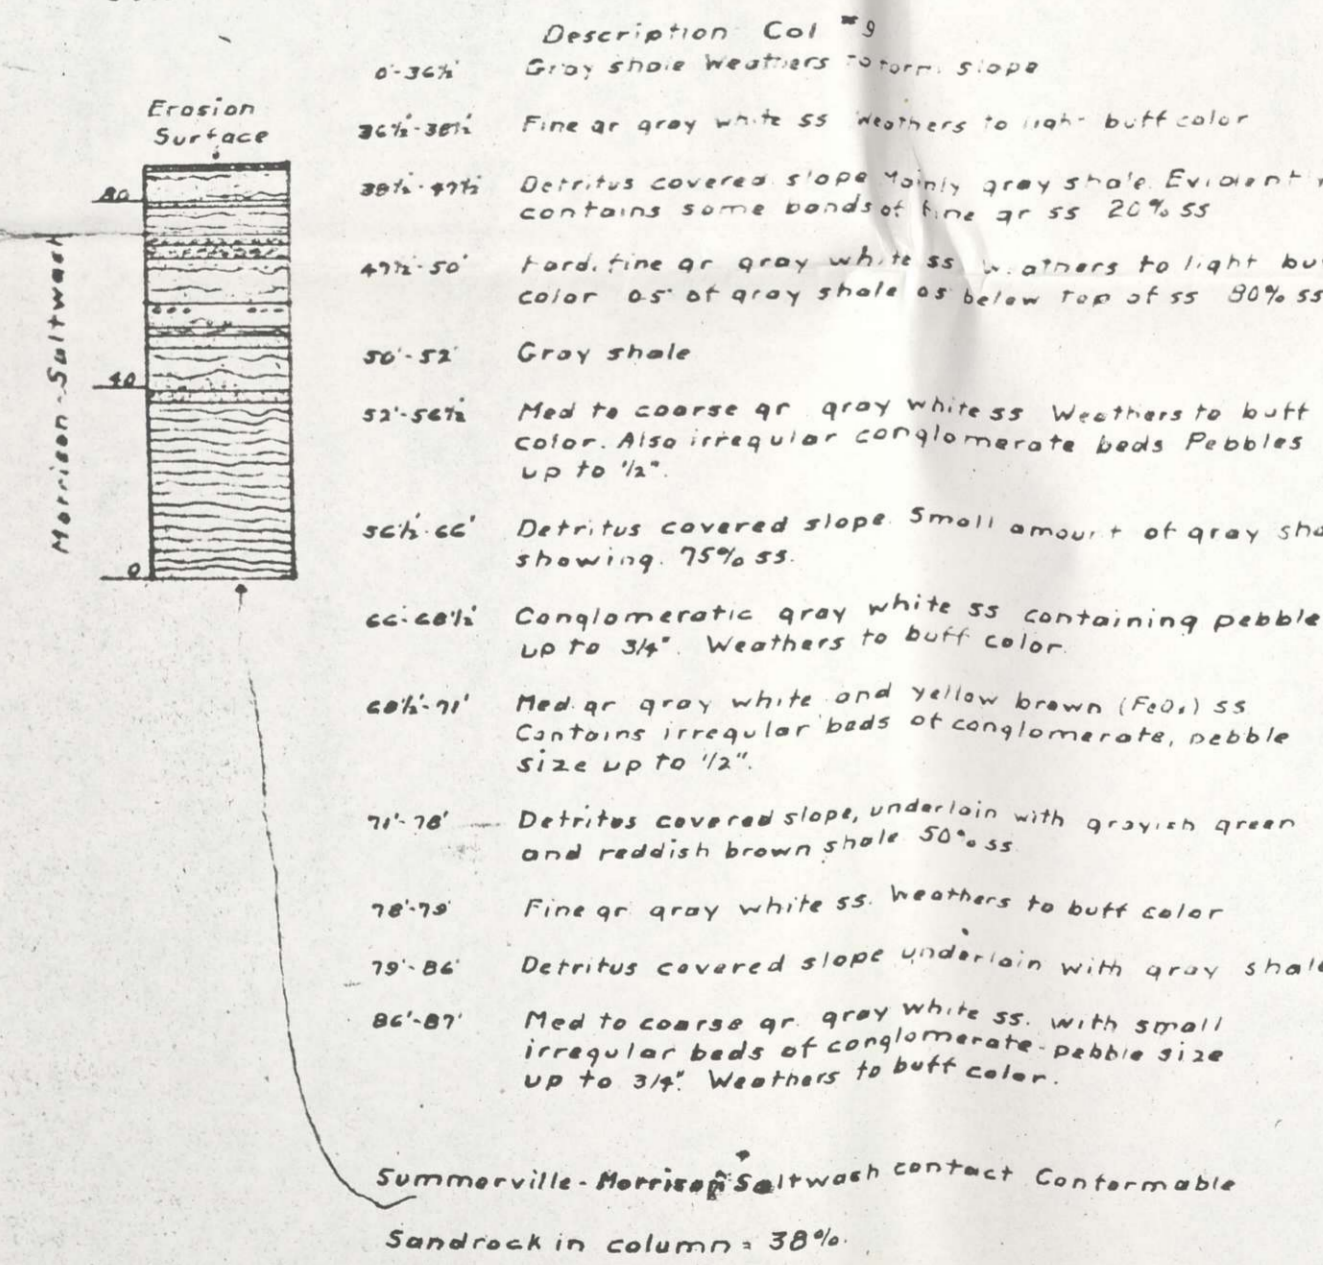 Description Col #9
0'-36½' Gray shale Weathers to form slope
Erosion
Surface
80
40
0
Morrison-Saltwash
36½'-38½' Fine gr gray white ss Weathers to light buff color
38½'-47½' Detritus covered slope Mainly gray shale. Evidently
contains some bands of fine gr ss 20% ss
47½'-50' Hard, fine gr gray white ss Weathers to light bu
color 0.5' of gray shale as below top of ss 80% ss
50'-52' Gray shale
52'-56½' Med to coarse gr gray white ss Weathers to buff
color. Also irregular conglomerate beds Pebbles
up to 1/2".
56½'-66' Detritus covered slope. Small amount of gray sha
showing. 75% ss.
66'-68½' Conglomeratic gray white ss containing pebble
up to 3/4". Weathers to buff color.
68½'-71' Med. gr gray white and yellow brown ss
Contains irregular beds of conglomerate, pebble
size up to 1/2".
71'-78' Detritus covered slope, underlain with grayish green
and reddish brown shale 50% ss
78'-79' Fine gr gray white ss. Weathers to buff color
79'-86' Detritus covered slope underlain with gray shale
86'-87' Med to coarse gr. gray white ss. with small
irregular beds of conglomerate-pebble size
up to 3/4". Weathers to buff color.
Summerville-Morrison Saltwash contact Conformable
Sandrock in column = 38%.